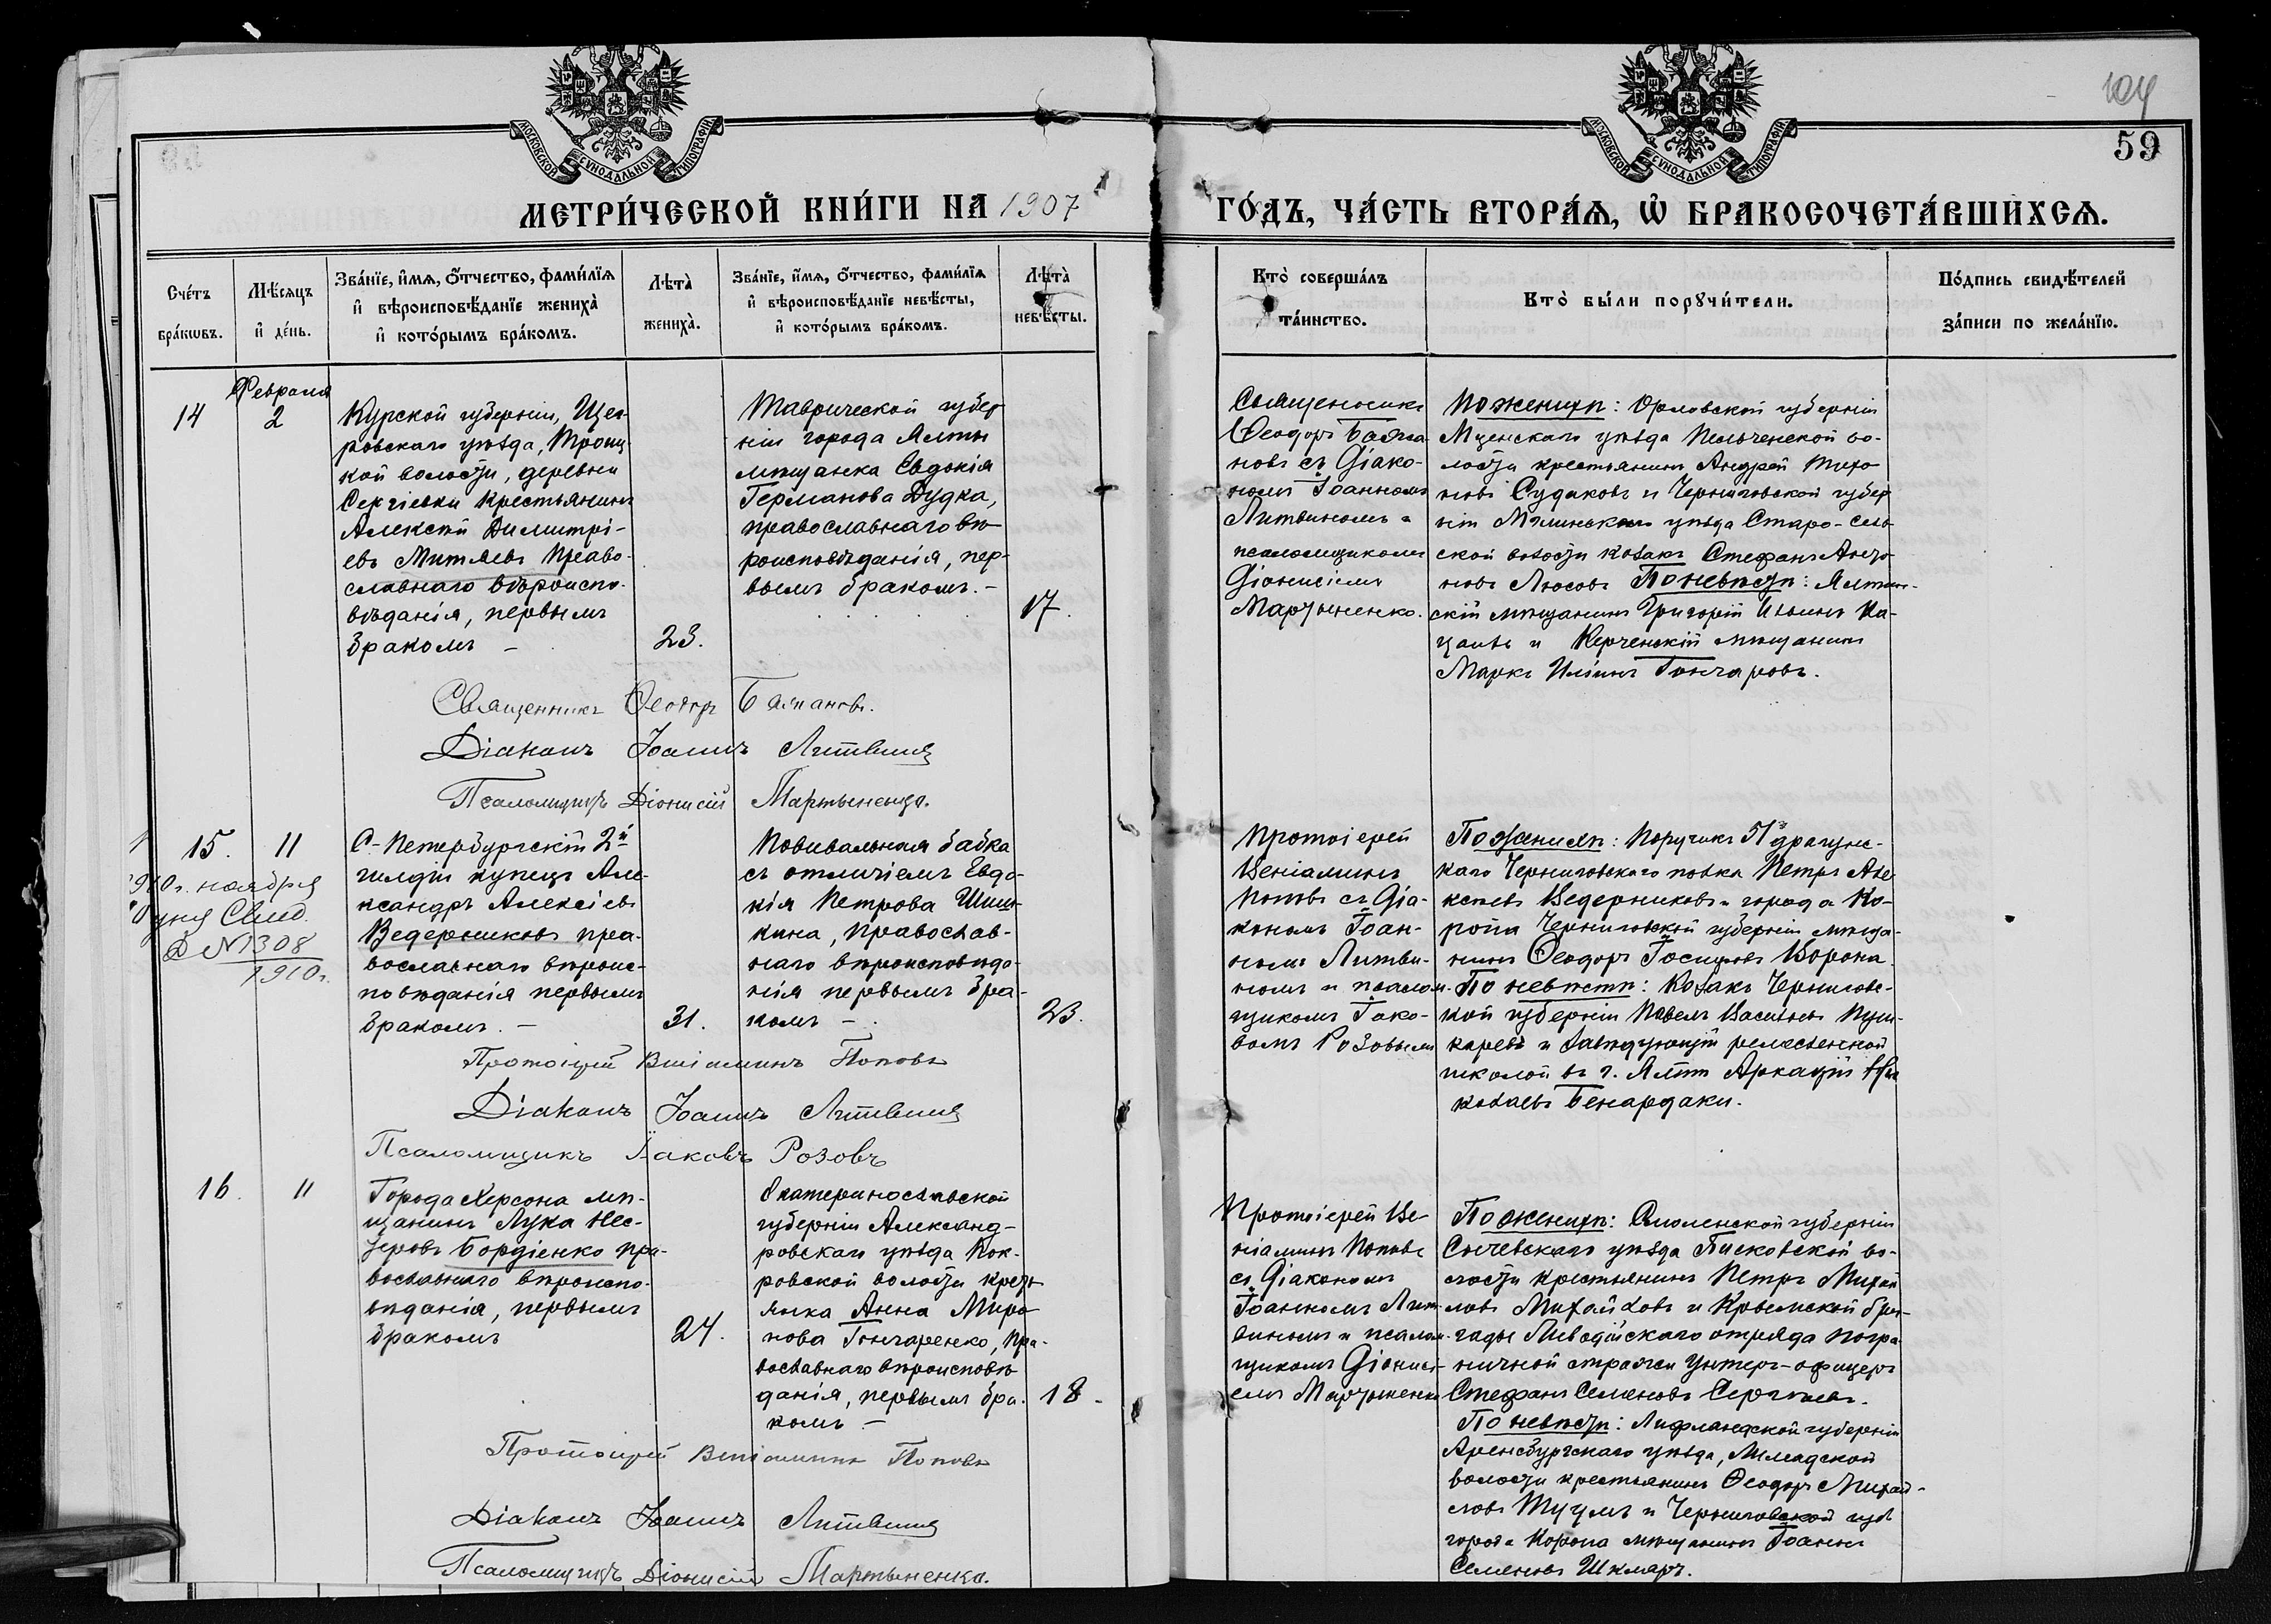 104
59
МОСКОВСКОЙ СУНОДАЛЬНОЙ ТИПОГРАФІИ
МОСКОВСКОЙ СУНОДАЛЬНОЙ ТИПОГРАФІИ
МЕТРИ́ЧЕСКОЙ КНИ́ГИ НА 1907
ГО́ДЪ, ЧА́СТЬ ВТОРА́Я, Ѽ БРАКОСОЧЕТА́ВШИХСЯ.
Сче́тъ
бра́кωвъ.
Мѣ́сяцъ
и҆ де́нь.
Зва́нїе, и҆́мя, ѻ҆́тчество, фами́лїя
и҆ вѣроисповѣ́данїе жениха̀
и҆ кото́рымъ бра́комъ.
Лѣта̀
жениха̀.
Зва́нїе, и҆́мя, ѻ҆́тчество, фами́лїя
и҆ вѣроисповѣ́данїе невѣ́сты,
и҆ кото́рымъ бра́комъ.
Лѣта̀
невѣ́сты.
Кто̀ соверша́лъ
та́инство.
Кто̀ бы́ли порꙋчи́тели.
По́дпись свидѣ́телей
за́писи по жела́нїю.
14
Февраля
2
Курской губерніи, Щиг-
ровскаго уѣзда, Троиц-
кой волости, деревни
Сергіевки крестьянинъ
Алексѣй Димитрі-
евъ Митяевъ право-
славнаго вѣроиспо-
вѣданія, первымъ
бракомъ –
23.
Таврической губер
ніи города Ялты
мѣщанка Евдокія
Германова Дудка,
православнаго вѣ-
роисповѣданія, пер-
вымъ бракомъ. –
17.
Священникъ
Ѳеодоръ
новъ съ Діако-
номъ Іоанномъ
Литвиномъ и
псаломщикомъ
Діонисіемъ
Мартыненко.
По женихѣ: Орловской губерніи
Мценскаго уѣзда во-
лости крестьянинъ Андрей Тихо
новъ Судаковъ и Черниговской губер
ніи Мглинскаго уѣзда Старо-сель
ской волости козакъ Стефанъ Анто
новъ Люсовъ По невѣстѣ: Ялтин-
скій мѣщанинъ Григорій Ильинъ Ка-
и Керченскій мѣщанинъ
Маркъ Иліинъ Гончаровъ.
Священникъ Ѳеодоръ
Діаконъ Іоаннъ Литвинъ
Псаломщикъ Діонисій Мартыненко.
15. 11
1910 г. ноября
Свид.
№ 1308
1910 г.
С-Петербургскій 2й
гильдіи купецъ Але-
ксандръ Алексіевъ
Ведерниковъ пра-
вославнаго вѣроис-
повѣданія первымъ
бракомъ. –
31.
Повивальная бабка
съ отличіемъ Евдо-
кія Петрова Шиш-
кина, православ-
наго вѣроисповѣда-
нія первымъ бра-
комъ –
23.
Протоіерей
Веніаминъ
Поповъ съ Діа-
кономъ Іоан-
номъ Литви-
номъ и псалом-
щикомъ Іако-
вомъ Розовымъ
По женихѣ: Поручикъ 51 драгунс-
каго Черниговскаго полка Петръ Але
ксѣевъ Ведерниковъ и города Ко-
ропа Черниговской губерніи мѣща-
нинъ Ѳеодоръ Іосифовъ Ворона.
По невѣстѣ: Козакъ Черниговс-
кой губерніи Павелъ Васильевъ Пуш-
каревъ и завѣдующій ремесленной
школой въ г. Ялтѣ Аркадій Ни
колаевъ Бенардаки.
Протоіерей Веніаминъ Поповъ
Діаконъ Іоаннъ Литвинъ
Псаломщикъ Іаковъ Розовъ
16. 11
Города Херсона мѣ-
щанинъ Лука Нес-
теровъ Бордіенко пра-
вославнаго вѣроиспо-
вѣданія, первымъ
бракомъ
24.
Екатеринославской
губерніи Александ-
ровскаго уѣзда Пок-
ровской волости кресть
янка Анна Миро-
нова Гончаренко, пра-
вославнаго вѣроисповѣ
данія, первымъ бра-
комъ –
18.
Протоіерей Ве-
ніаминъ Поповъ
съ Діакономъ
Іоанномъ Лит-
виномъ и псалом-
щикомъ Діонисі-
емъ Мартыненко
По женихѣ: Смоленской губерніи
Сычевскаго уѣзда во-
лости крестьянинъ Петръ Михай
ловъ Михайловъ и Крымской бри-
гады Ливадійскаго отряда погра-
ничной стражи унтеръ-офицеръ
Стефанъ Семеновъ Сергѣевъ.
По невѣстѣ: Лифляндской губерніи
Аренсбургскаго уѣзда,
волости крестьянинъ Ѳеодоръ Михай-
ловъ и Черниговской губ
города Коропа мѣщанинъ Іоаннъ
Семеновъ Шкляръ.
Протоіерей Веніаминъ Поповъ
Діаконъ Іоаннъ Литвинъ
Псаломщикъ Діонисій Мартыненко.